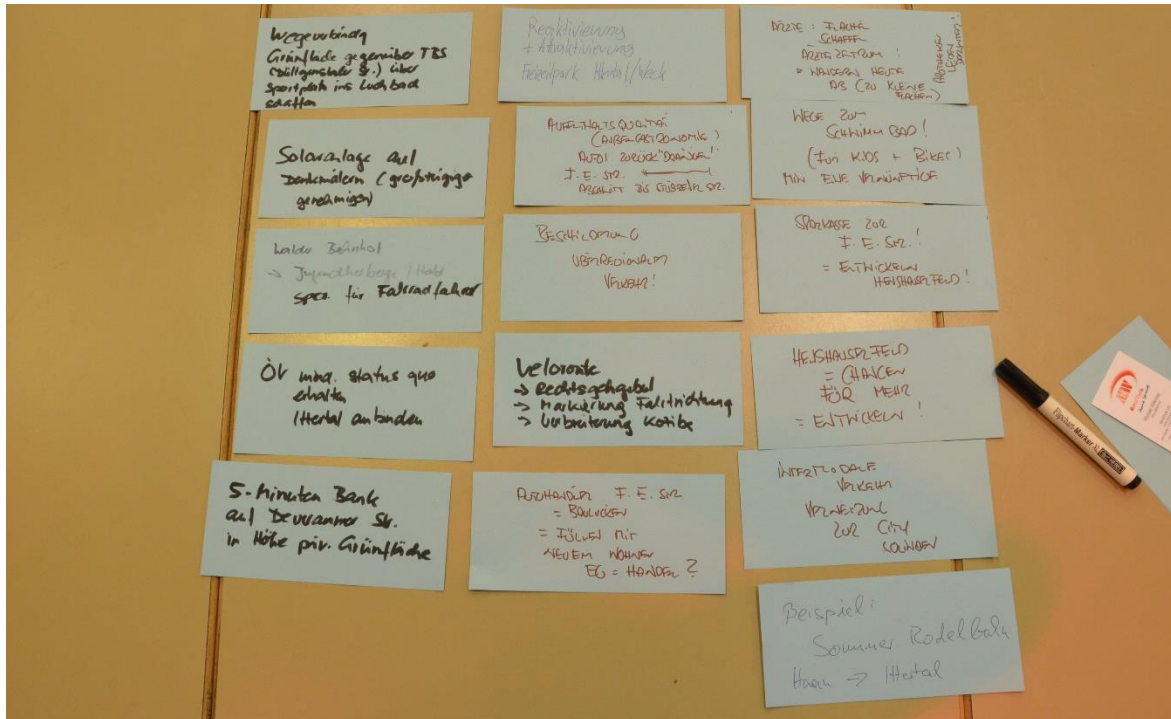 Wegeverbindg
Grünfläche gegenüber TBS
Str.) über
sportplatz ins
schaffen
Solaranlage auf
Denkmälern (großzügiger
genehmigen)
Walder Bahnhof
→ Jugendherberge / Hostel
spez. für Fahrradfahrer
ÖV mind. status quo
erhalten
Ittertal anbinden
5-Minuten Bank
auf Str.
in Höhe priv. Grünfläche
Reaktivierung
+ Attraktivierung
Freizeitpark Ittertal/
AUFENTHALTSQUALITÄT
(AUßENGASTRONOMIE)
AUTO ZURÜCK "DRÄNGEN"
F. E. STR.
ABSCHNITT BIS STR.
BESCHILDERUNG
ÜBERREGIONALER
VERKEHR!
Veloroute
→ Rechtsabgebgabel
→ Markierung Fahrtrichtung
→ Verbreiterung Kotibs
AUTOHÄNDLER F. E. STR
= BAULÜCKEN
= FÜLLEN MIT
NEUEM WOHNEN
EG = HANDEL?
ÄRZTE: FLÄCHEN
SCHAFFEN
ÄRZTEZETRUM!
= WANDERN HEUTE
AB (ZU KLEINE
FLÄCHEN)
APOTHEKEN
LEIDEN
DARUNTER!
WEGE ZUM
SCHWIMMBAD!
(FÜR KIDS + BIKES)
MIN EINE VERNÜNFTIGE
SPARKASSE ZUR
F. E. STR.!
= ENTWICKELN
!
= CHANCEN
FÜR MEHR
= ENTWICKELN!
INTERMODALE
VERKEHR
VERNETZUNG
ZUR CITY
SOLINGEN
Beispiel:
Sommer Rodelbahn
Haan → Ittertal
Flipchart-Marker XL